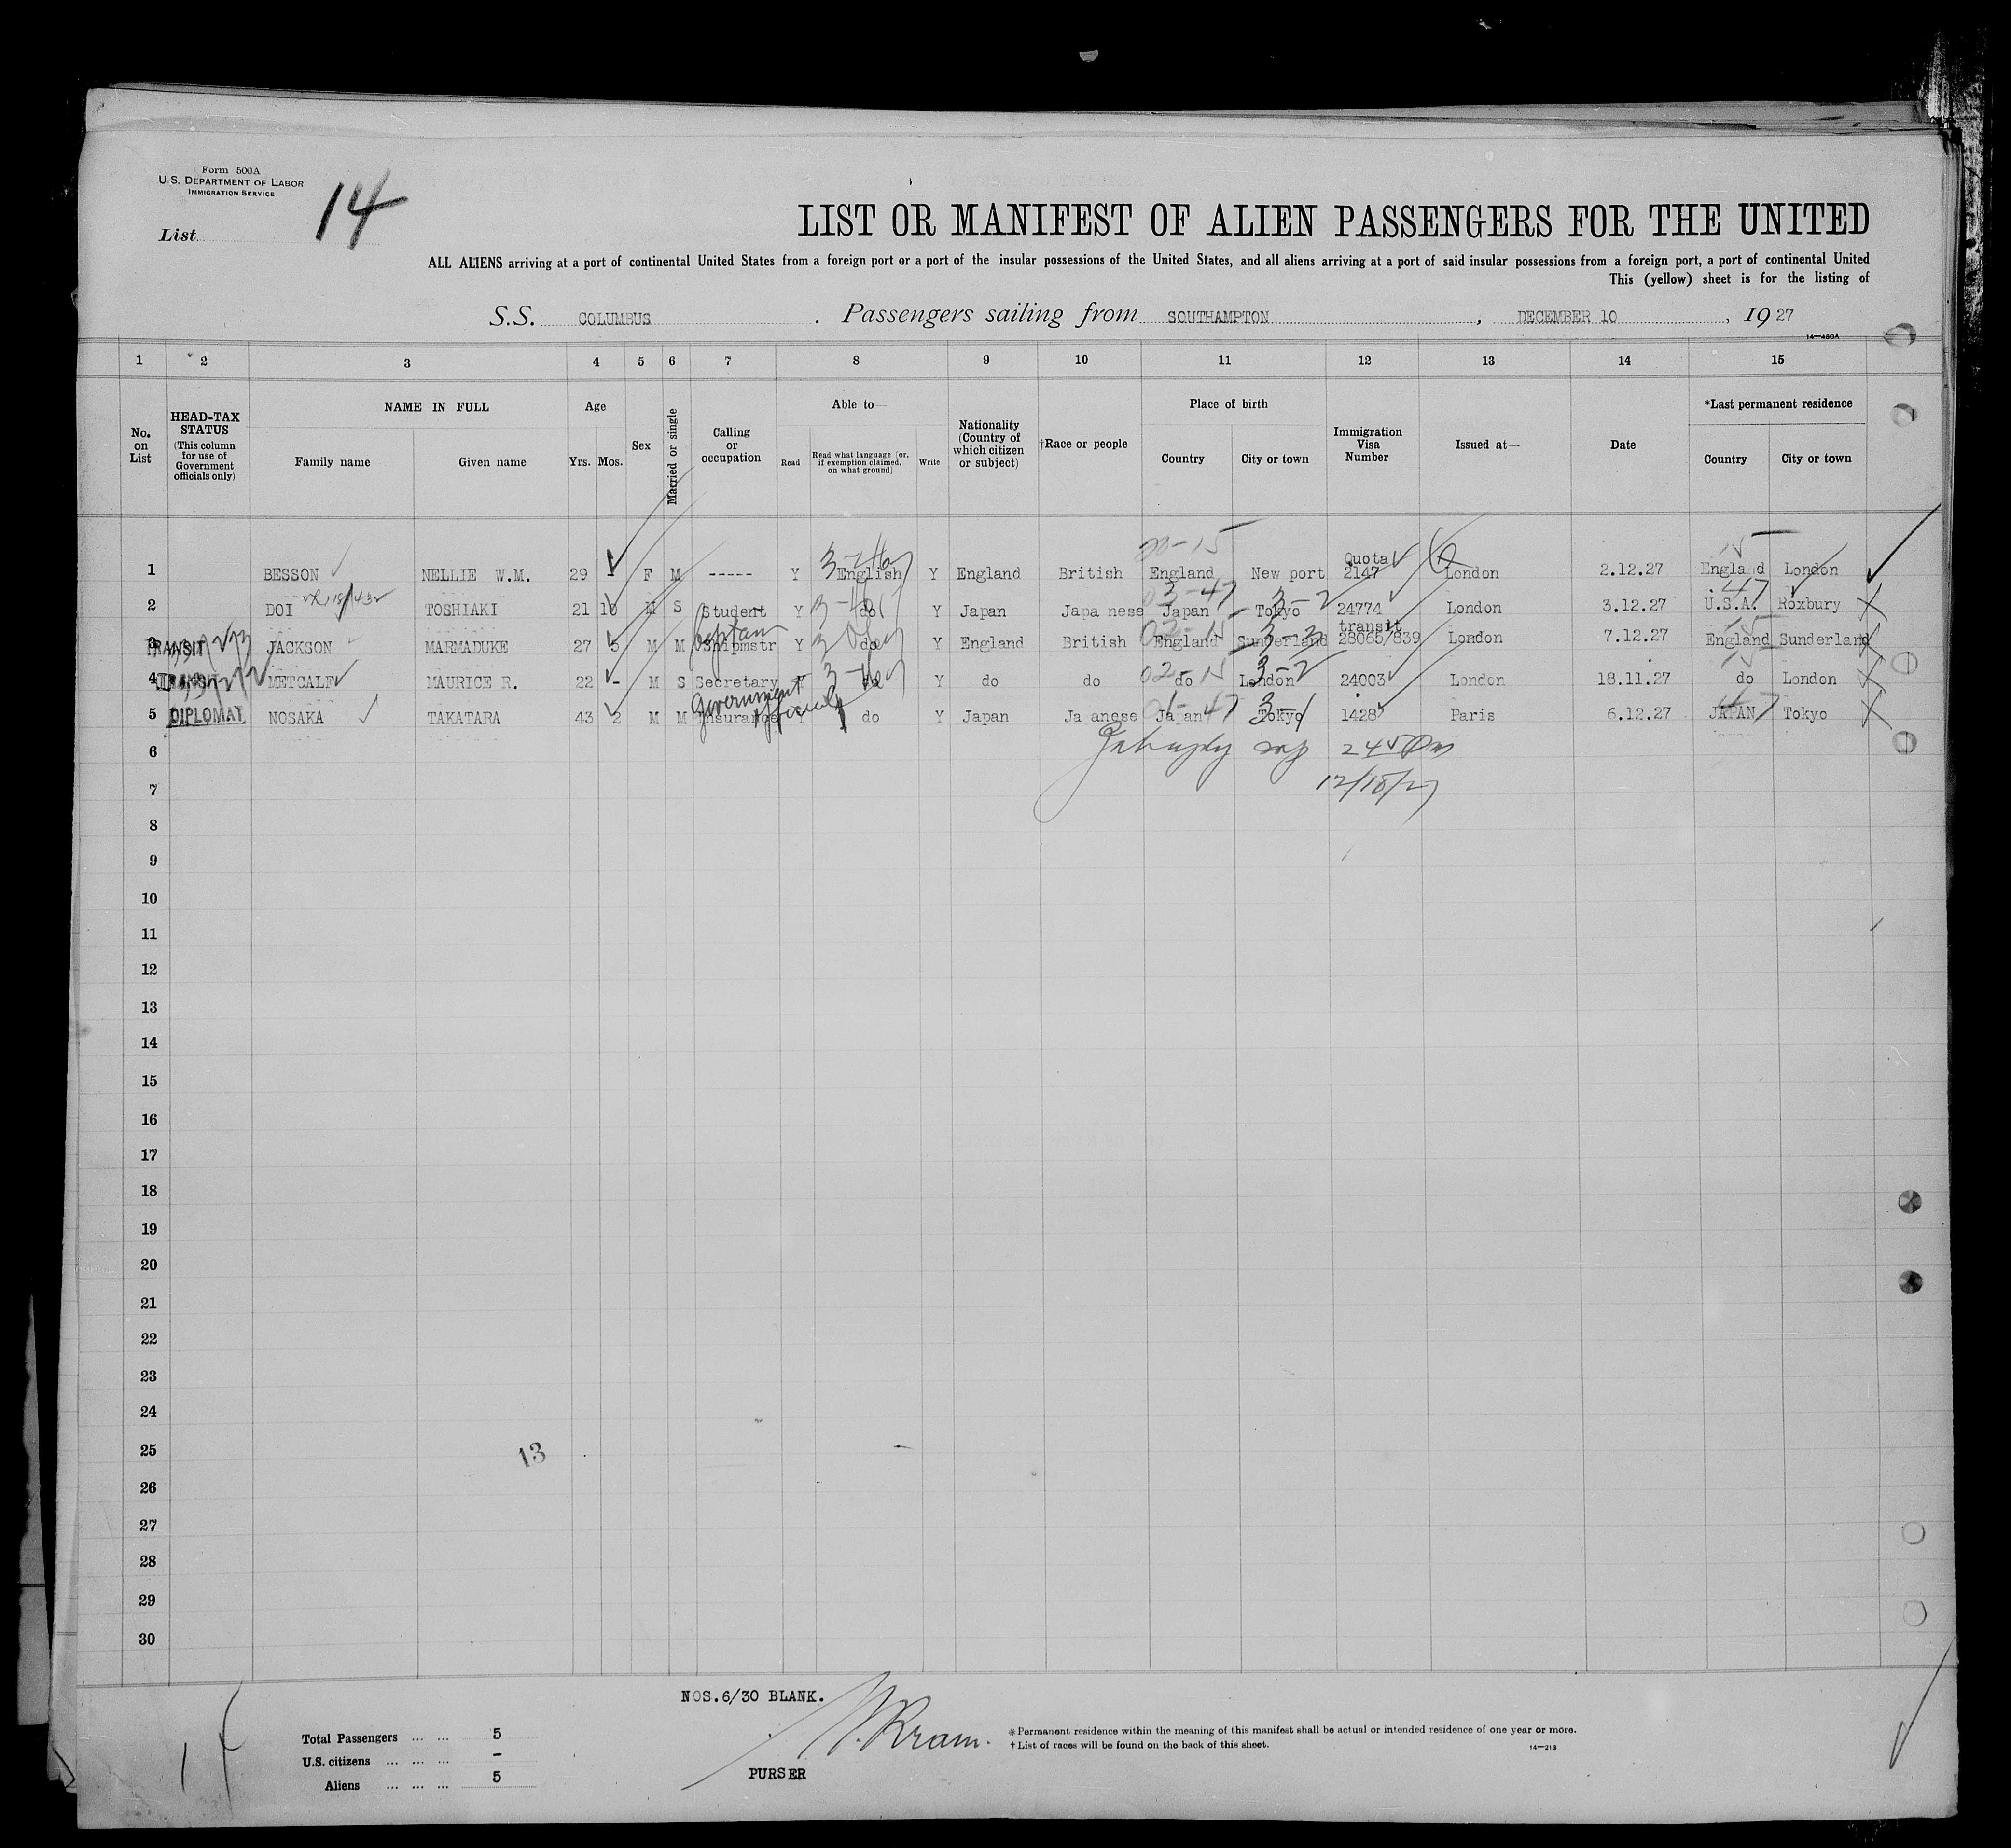 Form 500A
U.S. DEPARTMENT OF LABOR
IMMIGRATION SERVICE
List 14
LIST OR MANIFEST OF ALIEN PASSENGERS FOR THE UNITED
ALL ALIENS arriving at a port of continental United States from a foreign port or a port of the insular possessions of the United States, and all aliens arriving at a port of said insular possessions from a foreign port, a port of continental United
This (yellow) sheet is for the listing of
S.S. COLUMBUS . Passengers sailing from SOUTHAMPTON , DECEMBER 10 , 1927
14—480A
1 2 3 4 5 6 7 8 9 10 11 12 13 14 15
No. on List
HEAD-TAX STATUS (This column for use of Government officials only)
NAME IN FULL
Family name Given name
Age
Yrs. Mos.
Sex
Married or single
Calling or occupation
Able to—
Read Read what language [or, if exemption claimed, on what ground] Write
Nationality (Country of which citizen or subject)
†Race or people
Place of birth
Country City or town
Immigration Visa Number
Issued at—
Date
*Last permanent residence
Country City or town
20-15 Quota 15
1 BESSON NELLIE W.M. 29 - F M ----- Y English Y England British England New port 2147 London 2.12.27 England London
3-47 3-2 47
2 DOI TOSHIAKI 21 10 M S Student Y do Y Japan Japa nese Japan Tokyo 24774 London 3.12.27 U.S.A. Roxbury
Captain transit
3 TRANSIT JACKSON MARMADUKE 27 5 M M Shipmstr Y do Y England British England Sunderland 28065/839 London 7.12.27 England Sunderland
4 TRANSIT METCALF MAURICE R. 22 - M S Secretary Y do Y do do do London 24003 London 18.11.27 do London
Government official
5 DIPLOMAT NOSAKA TAKATARA 43 2 M M Insurance Y do Y Japan Ja anese Japan Tokyo 1428 Paris 6.12.27 JAPAN Tokyo
6 245 Pm
7 12/18/27
8
9
10
11
12
13
14
15
16
17
18
19
20
21
22
23
24
25 13
26
27
28
29
30
NOS.6/30 BLANK.
Total Passengers ... ... 5
U.S. citizens ... ... ... -
Aliens ... ... ... 5
W. Kram.
PURSER
*Permanent residence within the meaning of this manifest shall be actual or intended residence of one year or more.
†List of races will be found on the back of this sheet.
14—213
14